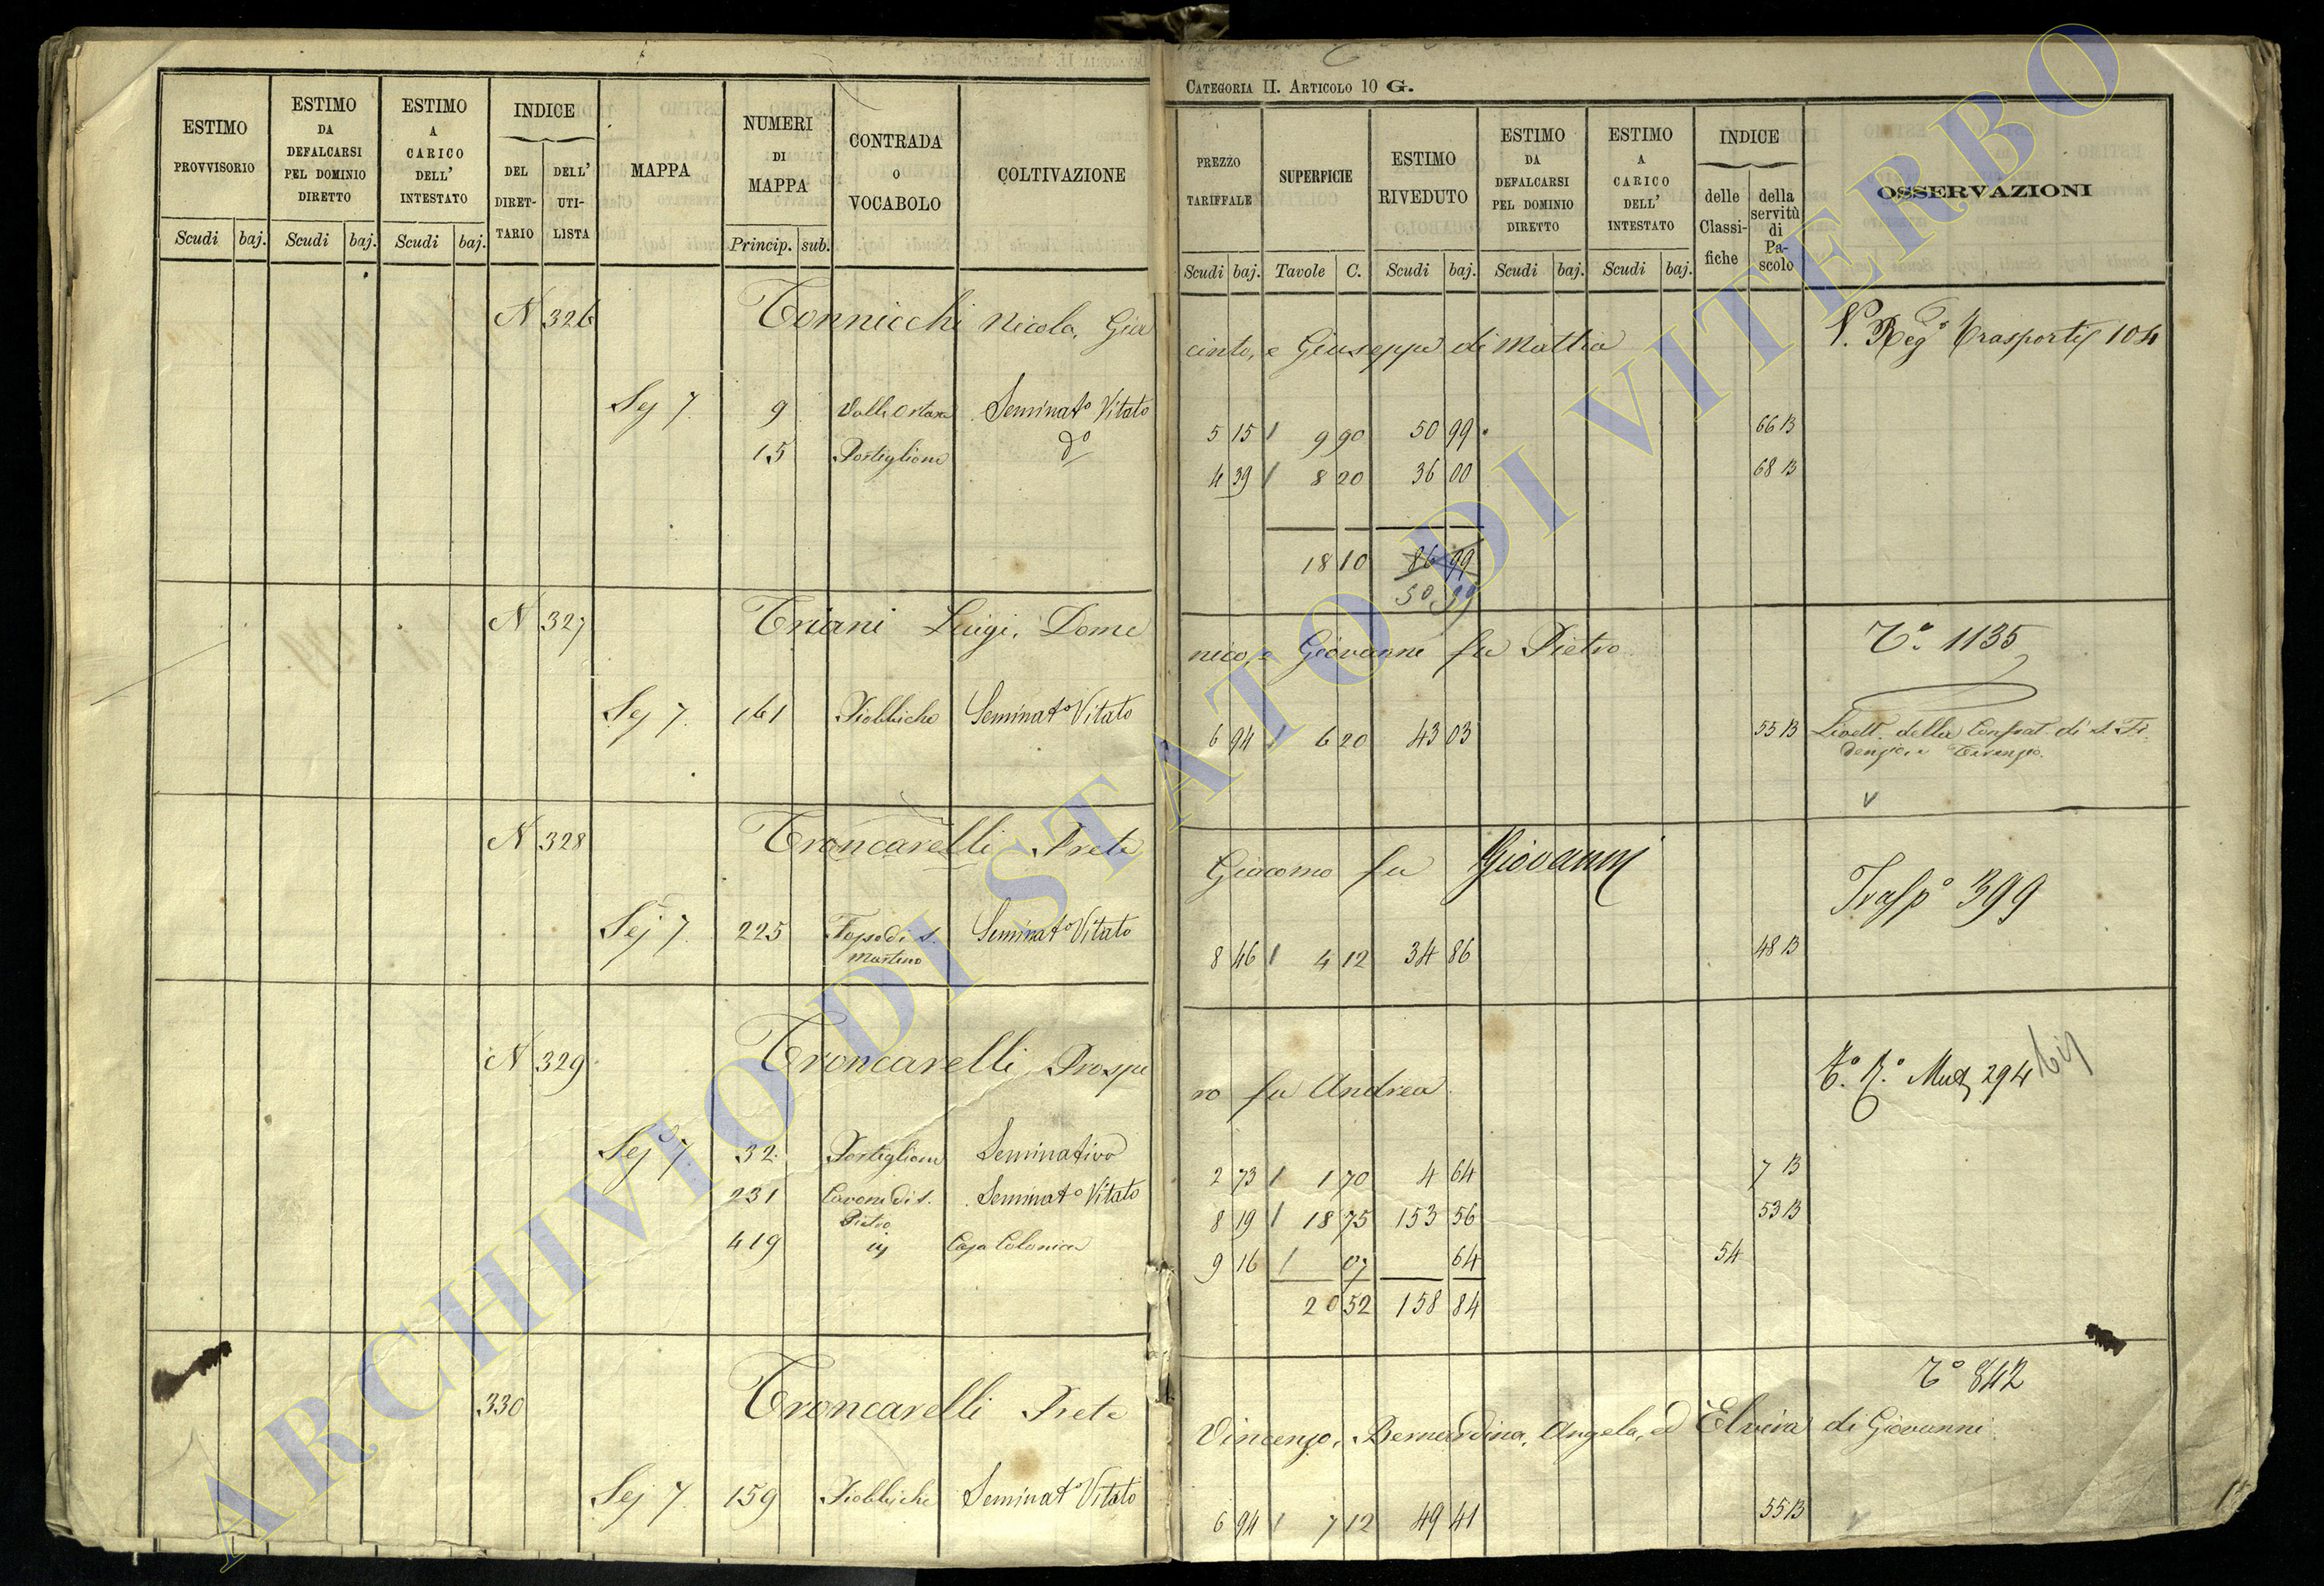 CATEGORIA II. ARTICOLO 10 G.
ESTIMO PROVVISORIO
ESTIMO DA DEFALCARSI PEL DOMINIO DIRETTO
ESTIMO A CARICO DELL' INTESTATO
INDICE
DEL DIRETTARIO
DELL' UTILISTA
MAPPA
NUMERI DI MAPPA
CONTRADA O VOCABOLO
COLTIVAZIONE
PREZZO TARIFFALE
SUPERFICIE
ESTIMO RIVEDUTO
ESTIMO DA DEFALCARSI PEL DOMINIO DIRETTO
ESTIMO A CARICO DELL' INTESTATO
INDICE
delle Classifiche
della servitù di Pascolo
OSSERVAZIONI
Scudi baj. Scudi baj. Scudi baj. Princip. sub.
Scudi baj. Tavole C. Scudi baj. Scudi baj. Scudi baj.
N 326 Tonnicchi Nicola, Giacinto, e Giuseppe di Mattia
V. Reg° Trasporti 104
Sej 7. 9 Seminat° Vitato 5 15 1 9 90 50 99 66 B
15 Postiglione d° 4 39 1 8 20 36 00 68 B
18 10 86 99
50 99
N 327 Triani Luigi, Domenico, e Giovanni fu Pietro
T° 1135
Sej 7. 161 Piobbiche Seminat° Vitato 6 94 1 6 20 43 03 55 B Livell. della Confrat. di S.
N 328 Troncarelli Prete Giacomo fu Giovanni
Trasp° 399
Sej 7. 225 di S. Martino Seminat° Vitato 8 46 1 4 12 34 86 48 B
N 329 Troncarelli Prospero fu Andrea
T° R° Mut 294 bis
Sej 7. 32 Postiglione Seminativo 2 73 1 1 70 4 64 7 B
231 Cavone di S. Pietro Seminat° Vitato 8 19 1 18 75 153 56 53 B
419 Casa Colonica 9 16 1 07 64 54
20 52 158 84
330 Troncarelli Prete Vincenzo, Bernardina, Angela, ed Elvira di Giovanni
T° 842
Sej 7. 159 Piobbiche Seminat° Vitato 6 94 1 7 12 49 41 55 B
ARCHIVIO DI STATO DI VITERBO